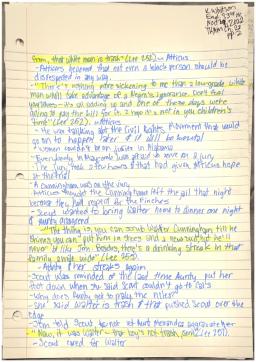 K. Watson
from, that white man is trash" (Lee 252) - Atticus
- Atticus
not even a black person should be
disrespected in any way.
"There's nothing more sickening to me than a low-grade white
man who'll take advantage of a Negro's ignorance. Don't fool
yourselves - it's all adding up and one of these days we're
going to pay the bill for it. I hope it's not in you children's
time" (Lee 252). - Atticus
- He was talking abt the Civil Rights Movement that would
go on to happen later & it will be
- Women couldn't be on juries in Alabama
- Everybody in Maycomb was afraid to serve on a jury
- The jury took a few hours & that had given Atticus hope
- A Cunningham was on the jury
- Atticus
the Cunningham
left the jail that night
because they had respect for the Finches
- Scout wanted to bring Walter home to dinner one night
& Aunty disagreed
- "The thing is, you can scrub Walter Cunningham till he
shines, you can put him in shoes and a new suit, but he'll
never be like Jem. Besides, there's a drinking streak in that
family a mile wide" (Lee 255).
- Aunty & her streaks again
- Scout was reminded of the last time Aunty put her
foot down when she said Scout couldn't go to Cal's
- Why does Aunty get to make the rules?
- She said Walter is trash & that pushed Scout over the
edge
- Jem told Scout to not let Aunt Alexandra aggravate her
- "Now, it was Walter - that boy's not trash, Jem" (Lee 257).
- Scout cared for Walter